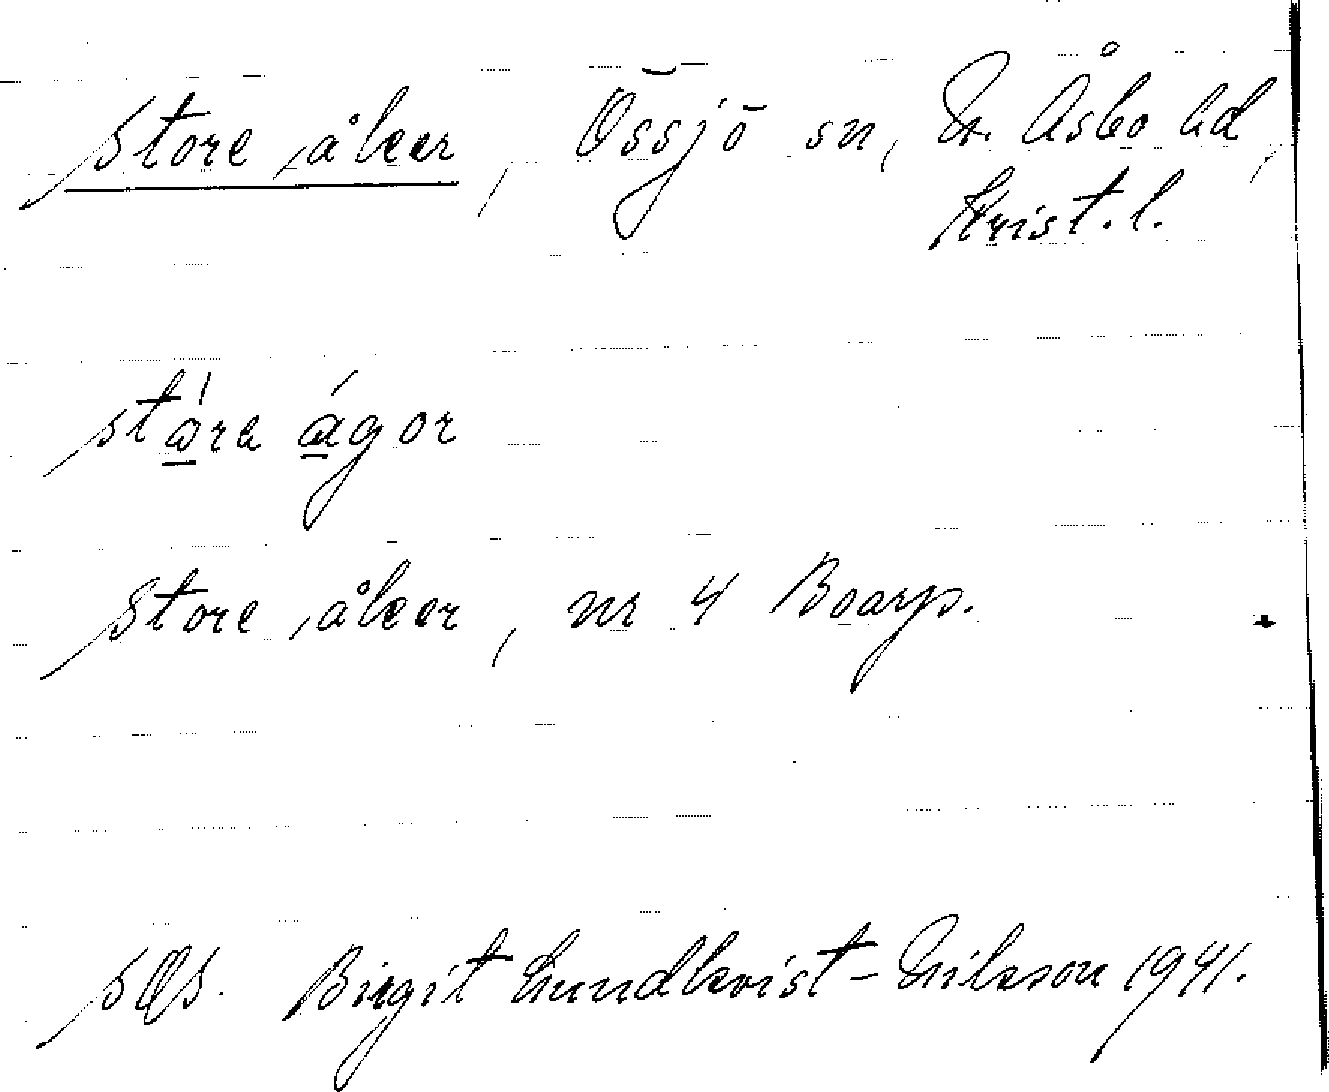 Store åker, Össjö sn, N. Åsbo hd,
Krist. l.
stóra ágor
Store åker, nr 4 Boarp.
sOs. Birgit Lundkvist-Nilsson 1941.